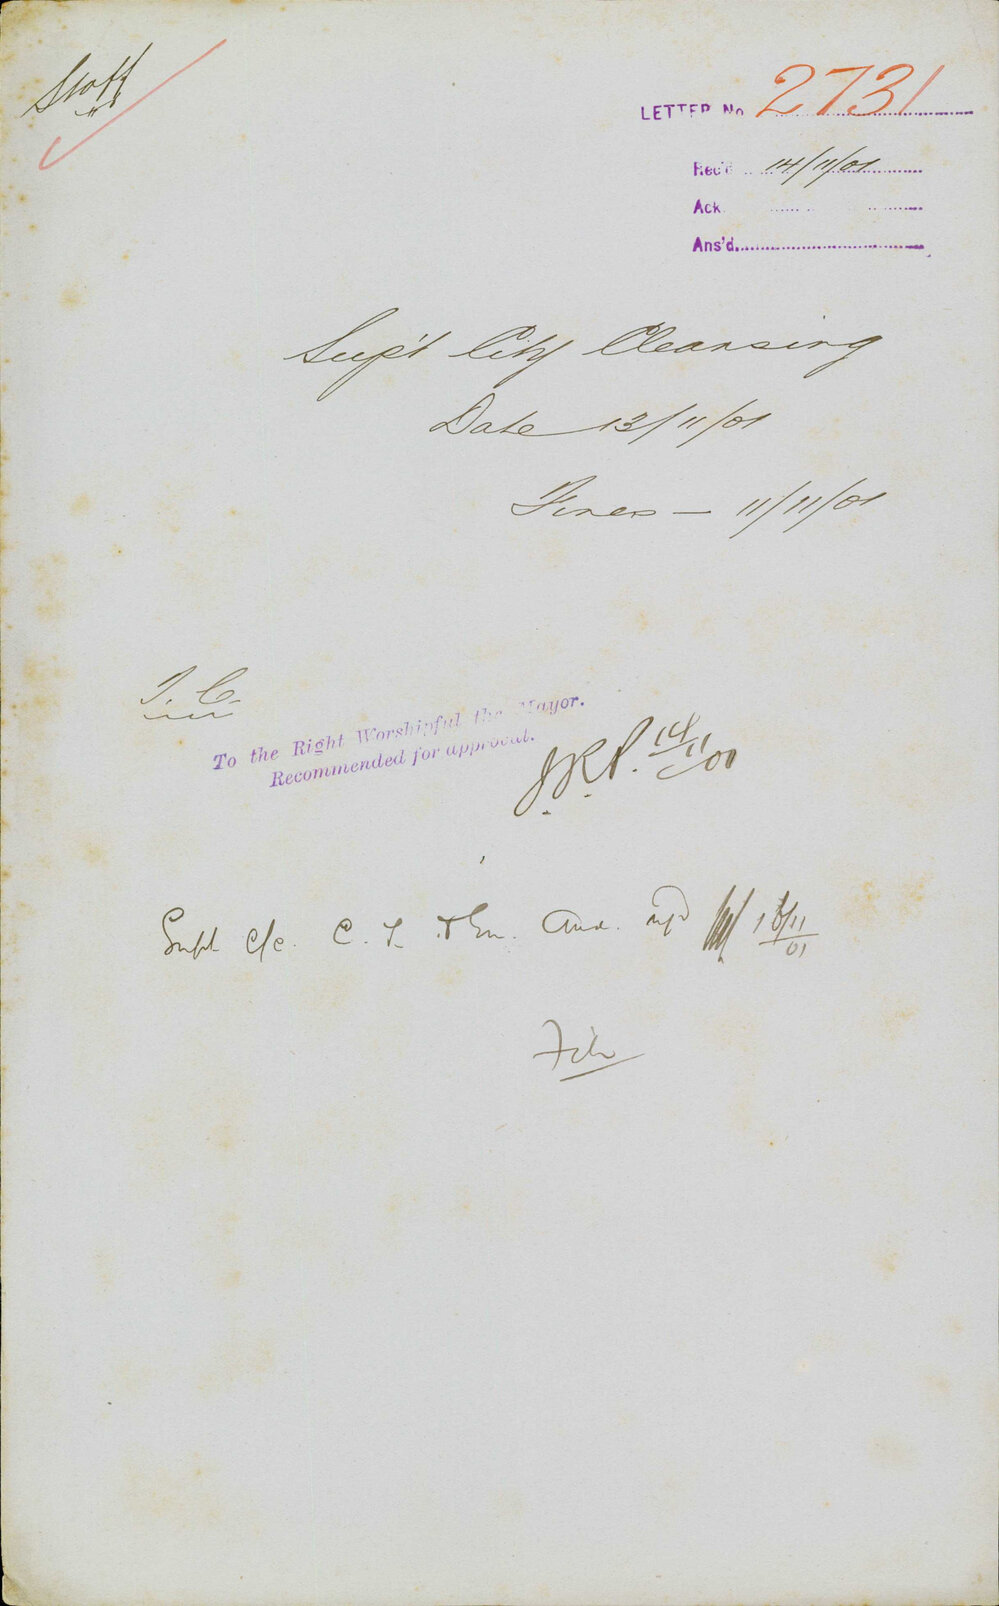 Staff
LETTER No 2731
Rec'd 14/11/01
Ack
Ans'd
Sup't City Cleansing
Date 13/11/01
Fines — 11/11/01
T. C.
To the Right Worshipful the Mayor.
Recommended for approval.
14/11/01
Supt C/c. C. T. Aud.
16/11/01
File